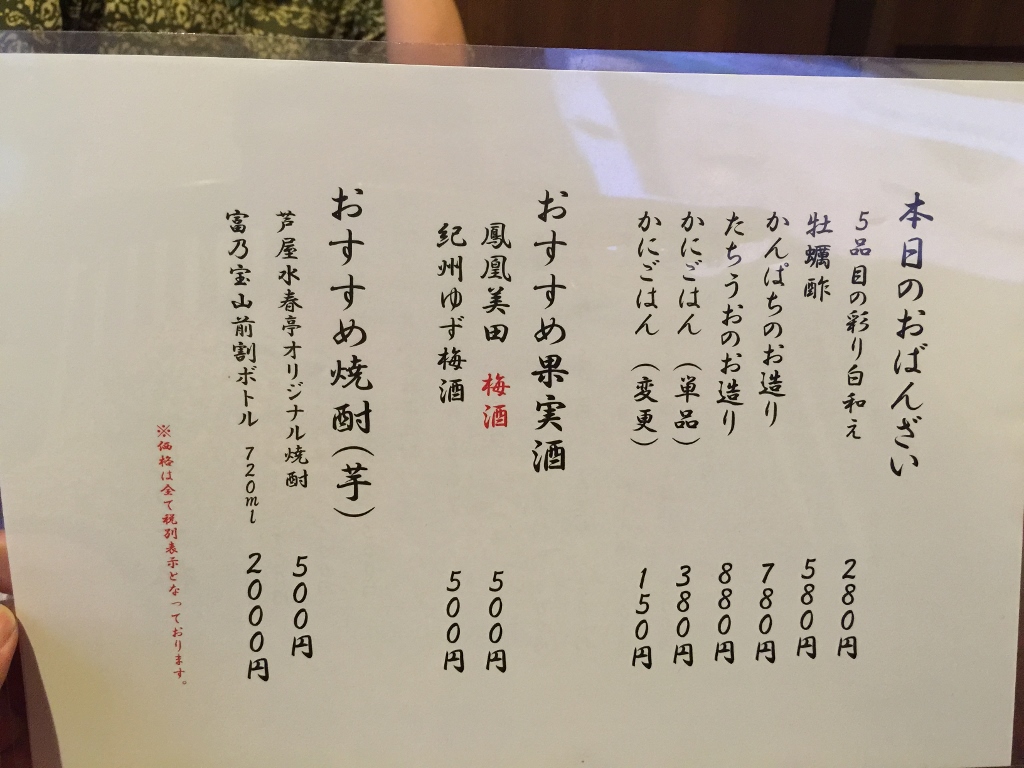 本日のおばんざい
5品目の彩り白和え 280円
牡蠣酢 580円
かんぱちのお造り 780円
たちうおのお造り 880円
かにごはん(単品) 380円
かにごはん(変更) 150円
おすすめ果実酒
鳳凰美田 梅酒 500円
紀州ゆず梅酒 500円
おすすめ焼酎(芋)
芦屋水春亭オリジナル焼酎 500円
富乃宝山前割ボトル 720ml 2000円
※価格は全て税別表示となっております。